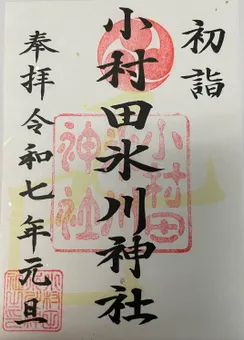 初詣
小村田氷川神社
奉拝令和七年元旦
小村田
氷川
神社